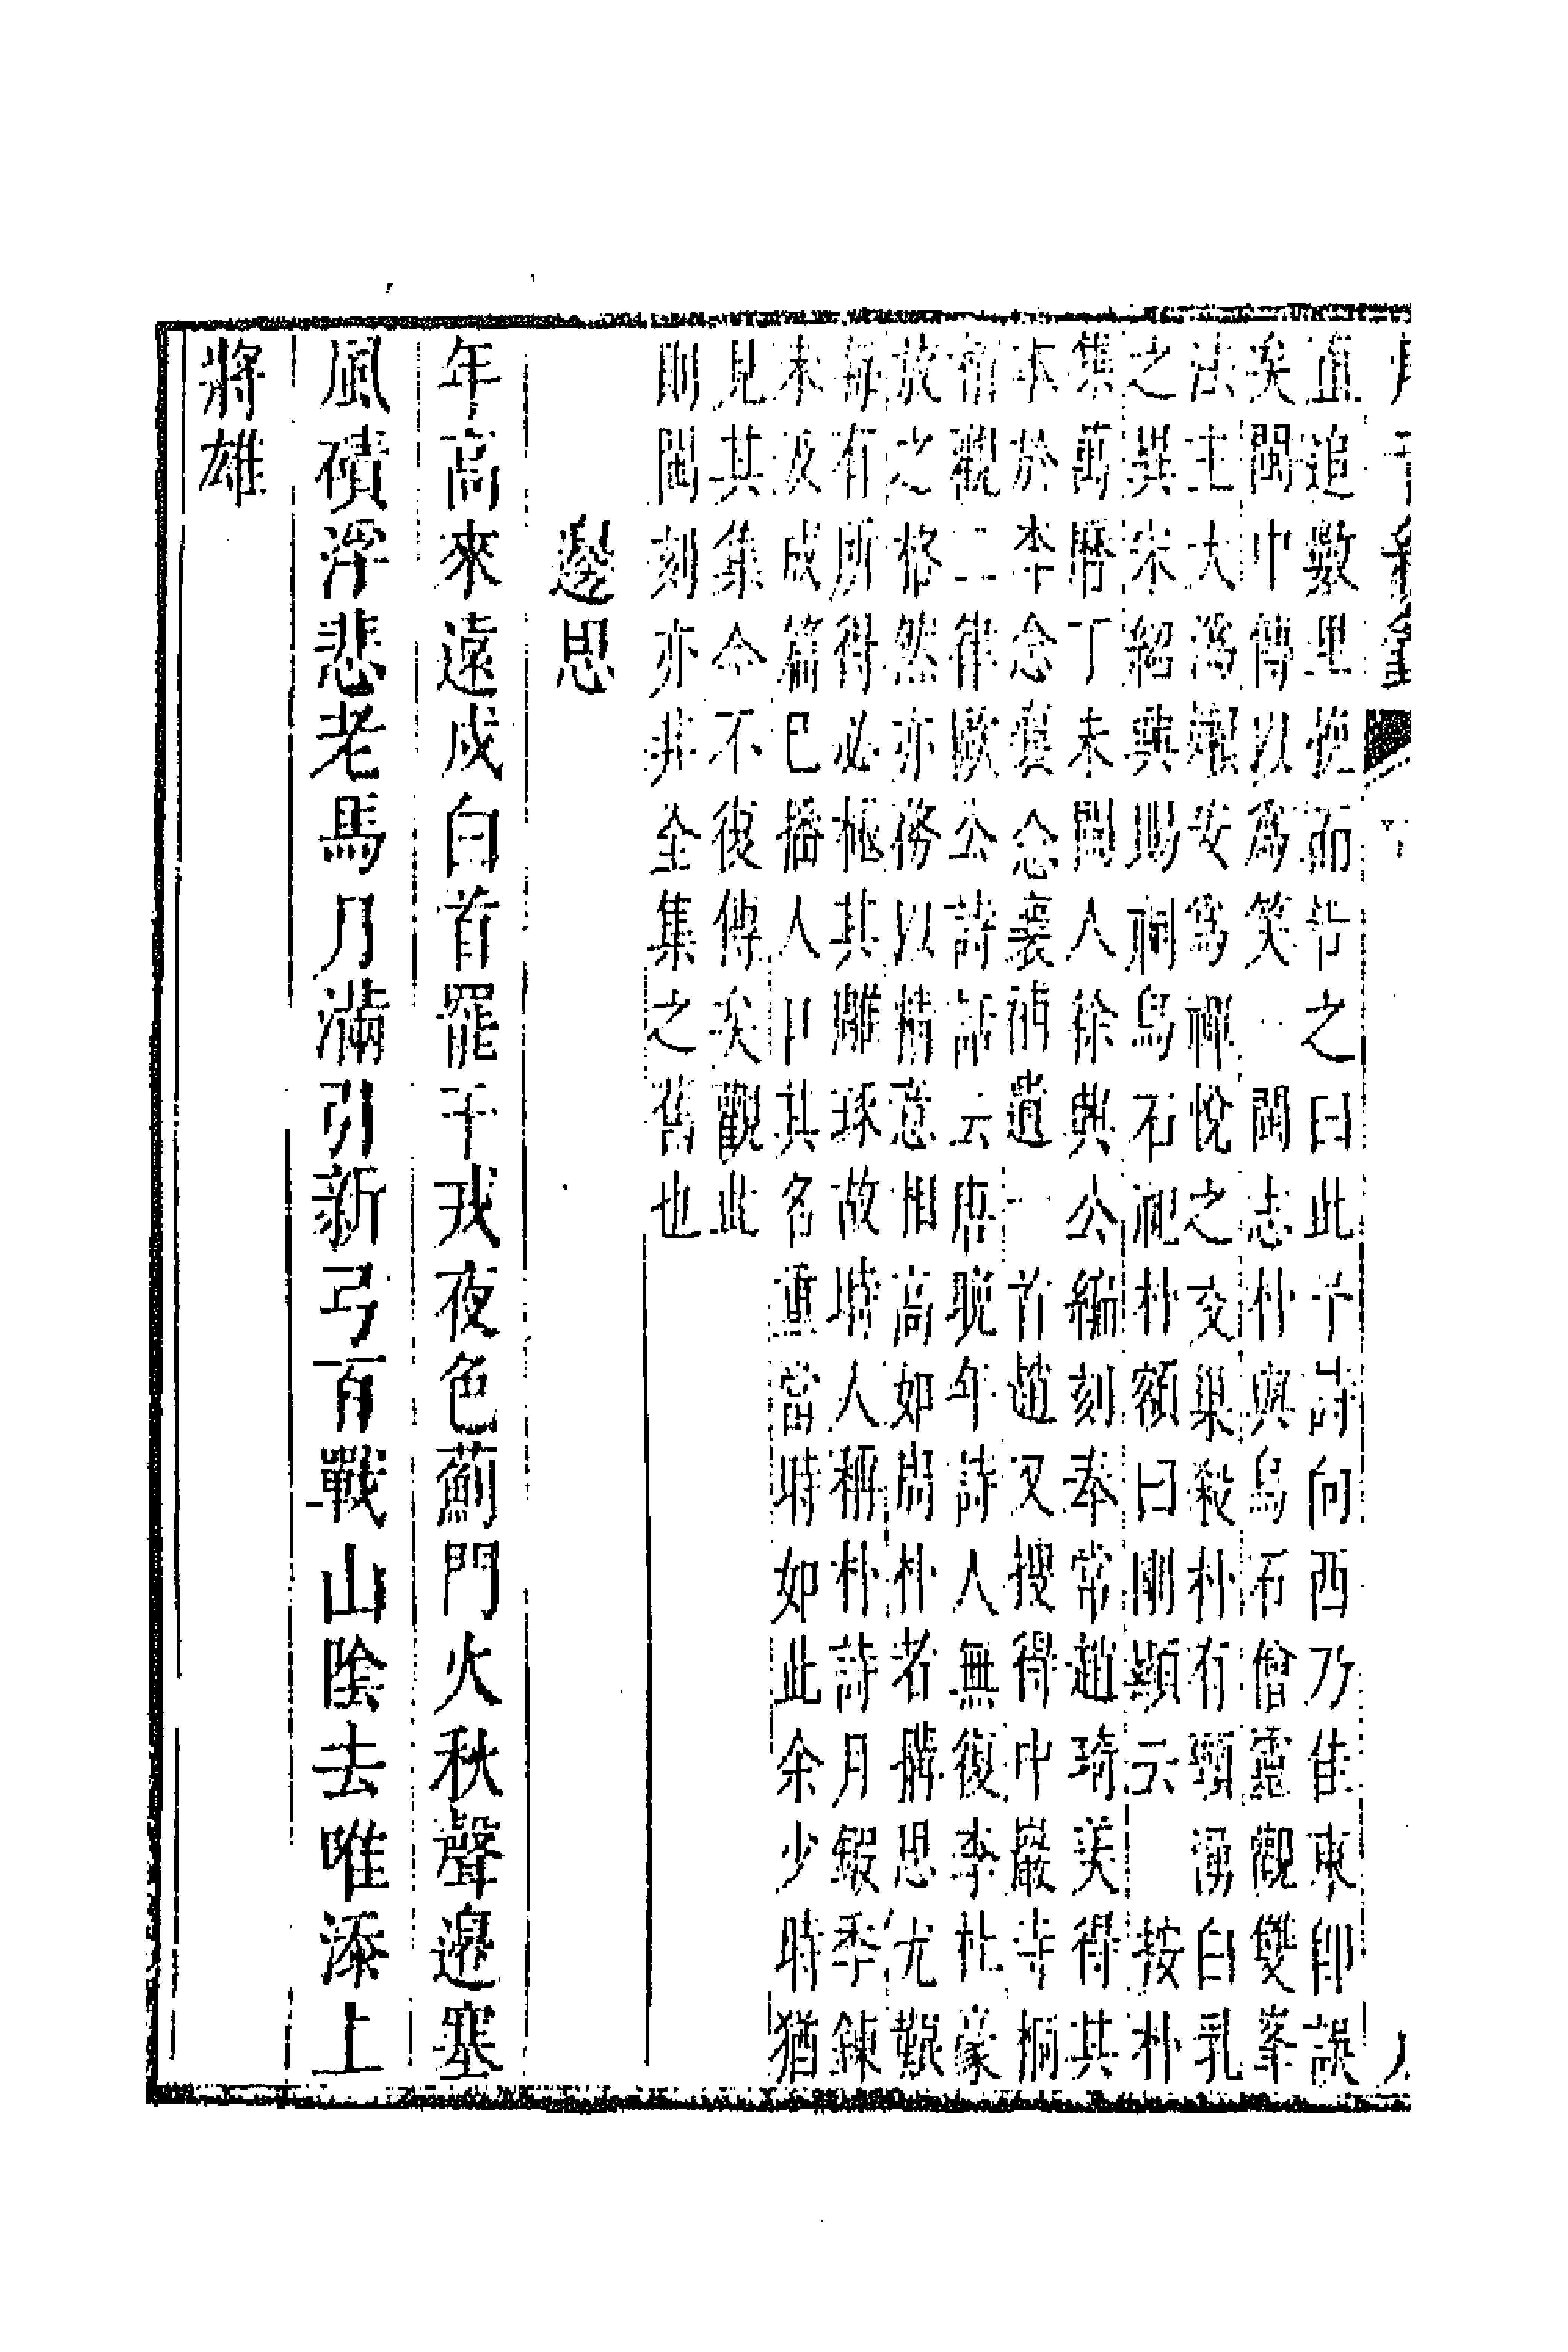 直追數里挽而告之曰此予詩向西乃佳東卽誤
矣閩中傳以爲笑　閩志朴與烏石僧靈觀雙峯
法主大溈嬾安爲禪悅之交巢殺朴有頸湧白乳
之異宋紹興賜祠烏石祀朴額曰剛顯云　按朴
集萬曆丁未閩人徐興公編刻奉常趙琦美得其
本於李念襄念襄補遺一首趙又搜得中巖寺桐
宿觀二律歐公詩話云唐晚年詩人無復李杜豪
放之格然亦務以精意相高如周朴者構思尤艱
每有所得必極其雕琢故時人稱朴詩月鍛季鍊
未及成篇已播人口其名重當時如此余少時猶
見其集今不復傳矣觀此
則閩刻亦非全集之舊也
邊思
年高來遠戍白首罷干戎夜色薊門火秋聲邊塞
風磧浮悲老馬月滿引新弓百戰山陰去唯添上
將雄